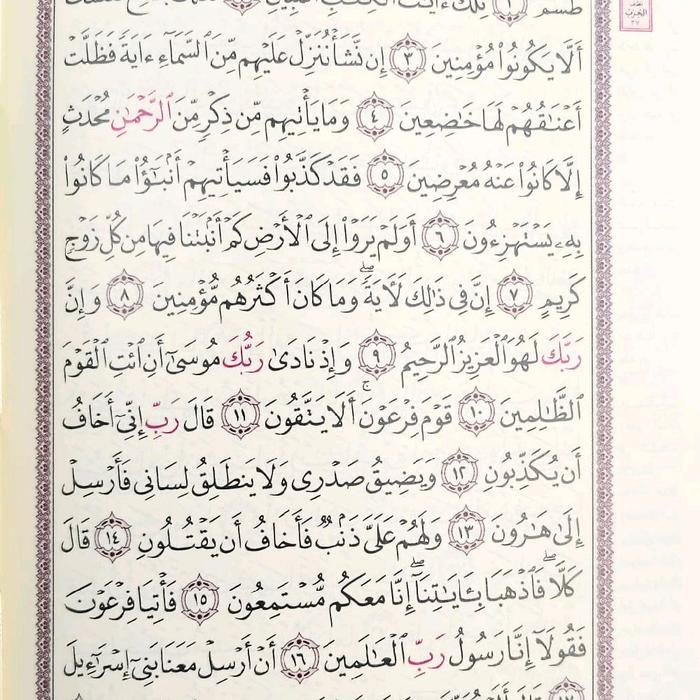 طسٓمٓ ١ تِلۡكَ ءَايَٰتُ ٱلۡكِتَٰبِ ٱلۡمُبِينِ
أَلَّا يَكُونُواْ مُؤۡمِنِينَ ٣ إِن نَّشَأۡ نُنَزِّلۡ عَلَيۡهِم مِّنَ ٱلسَّمَآءِ ءَايَةٗ فَظَلَّتۡ
أَعۡنَٰقُهُمۡ لَهَا خَٰضِعِينَ ٤ وَمَا يَأۡتِيهِم مِّن ذِكۡرٖ مِّنَ ٱلرَّحۡمَٰنِ مُحۡدَثٍ
إِلَّا كَانُواْ عَنۡهُ مُعۡرِضِينَ ٥ فَقَدۡ كَذَّبُواْ فَسَيَأۡتِيهِمۡ أَنۢبَٰٓؤُاْ مَا كَانُواْ
بِهِۦ يَسۡتَهۡزِءُونَ ٦ أَوَلَمۡ يَرَوۡاْ إِلَى ٱلۡأَرۡضِ كَمۡ أَنۢبَتۡنَا فِيهَا مِن كُلِّ زَوۡجٖ
كَرِيمٍ ٧ إِنَّ فِي ذَٰلِكَ لَأٓيَةٗۖ وَمَا كَانَ أَكۡثَرُهُم مُّؤۡمِنِينَ ٨ وَإِنَّ
رَبَّكَ لَهُوَ ٱلۡعَزِيزُ ٱلرَّحِيمُ ٩ وَإِذۡ نَادَىٰ رَبُّكَ مُوسَىٰٓ أَنِ ٱئۡتِ ٱلۡقَوۡمَ
ٱلظَّٰلِمِينَ ١٠ قَوۡمَ فِرۡعَوۡنَۚ أَلَا يَتَّقُونَ ١١ قَالَ رَبِّ إِنِّيٓ أَخَافُ
أَن يُكَذِّبُونِ ١٢ وَيَضِيقُ صَدۡرِي وَلَا يَنطَلِقُ لِسَانِي فَأَرۡسِلۡ
إِلَىٰ هَٰرُونَ ١٣ وَلَهُمۡ عَلَيَّ ذَنۢبٞ فَأَخَافُ أَن يَقۡتُلُونِ ١٤ قَالَ
كَلَّاۖ فَٱذۡهَبَا بِـَٔايَٰتِنَآۖ إِنَّا مَعَكُم مُّسۡتَمِعُونَ ١٥ فَأۡتِيَا فِرۡعَوۡنَ
فَقُولَآ إِنَّا رَسُولُ رَبِّ ٱلۡعَٰلَمِينَ ١٦ أَنۡ أَرۡسِلۡ مَعَنَا بَنِيٓ إِسۡرَٰٓءِيلَ
١٧